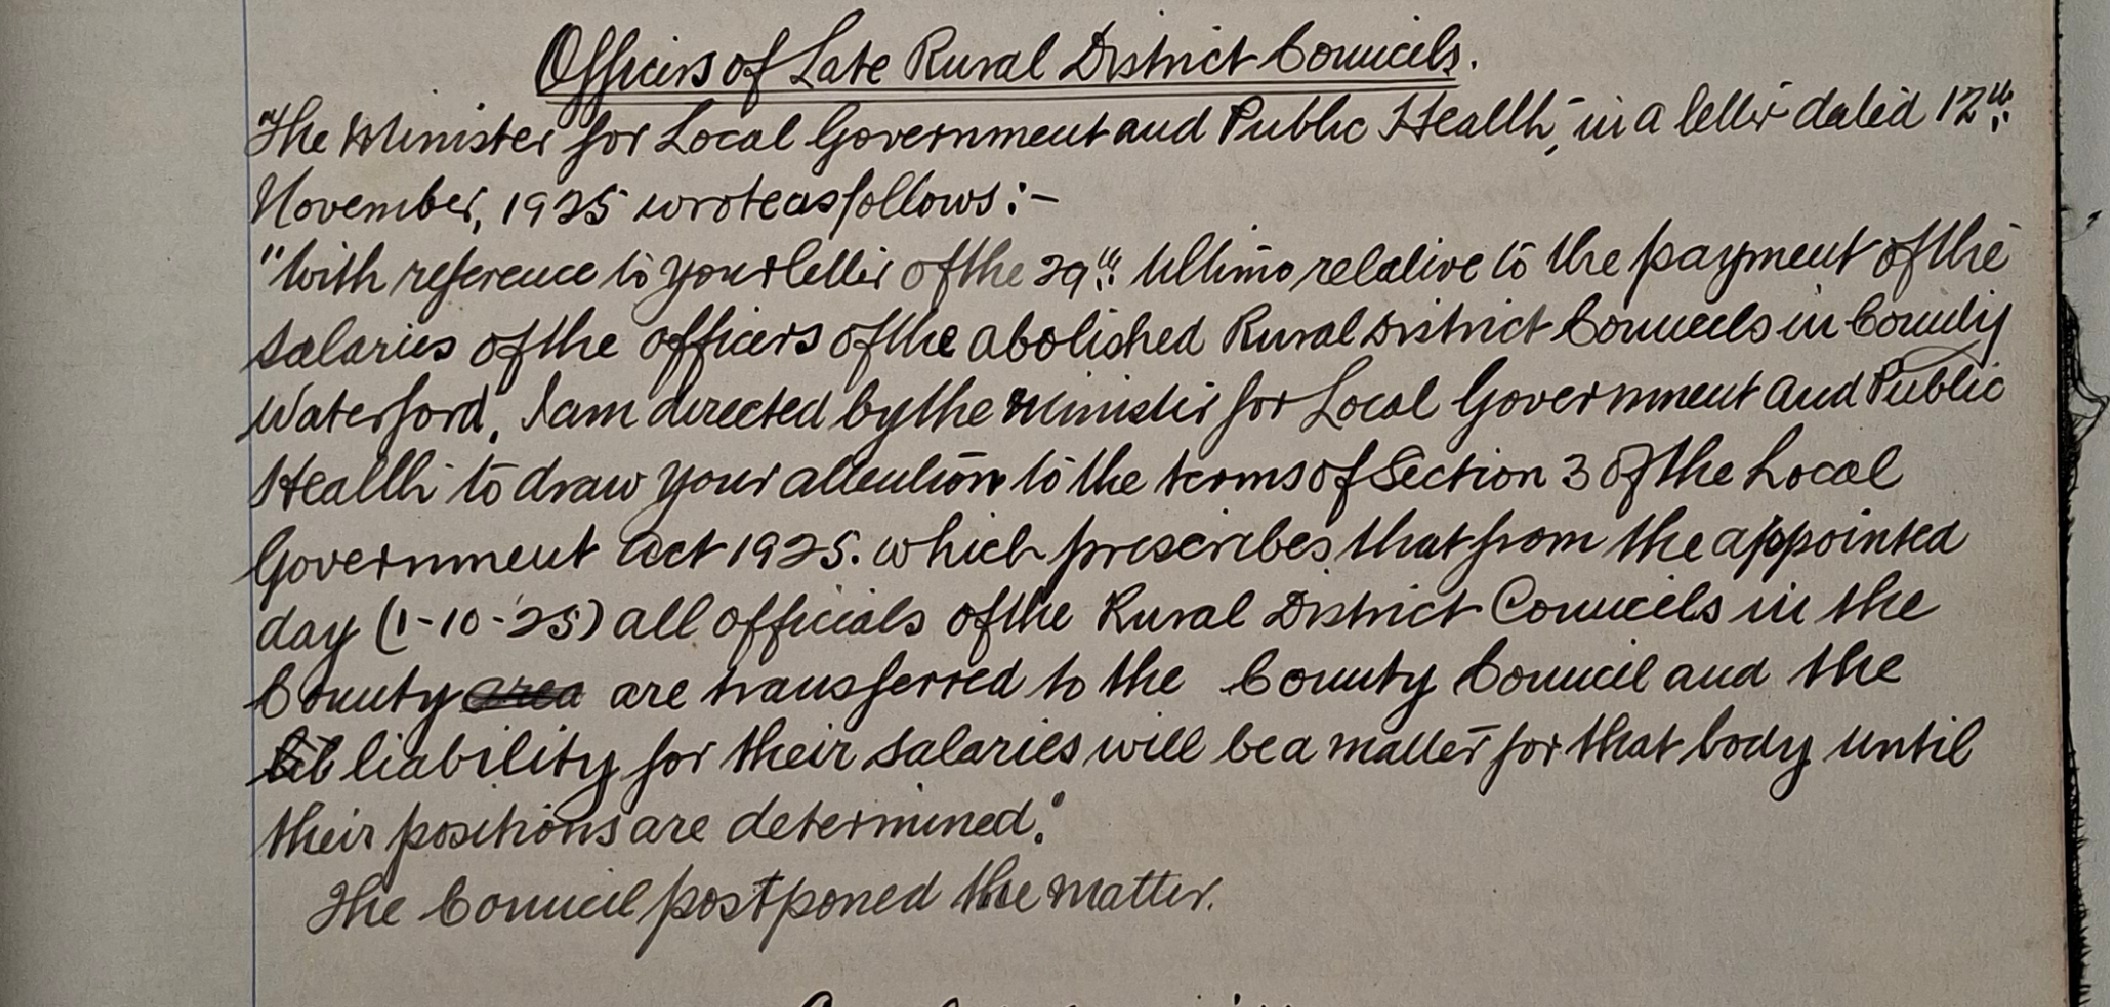 Officers of Late Rural District Councils.
"The Minister for Local Government and Public Health, in a letter dated 12th
November, 1925 wrote as follows:-
"With reference to your letter of the 29th Ultimo relative to the payment of the
salaries of the officers of the abolished Rural District Councils in County
Waterford, I am directed by the Minister for Local Government and Public
Health to draw your attention to the terms of Section 3 of the Local
Government Act 1925. which prescribes that from the appointed
day (1-10-'25) all officials of the Rural District Councils in the
County area are transferred to the County Council and the
liability for their salaries will be a matter for that body until
their positions are determined."
The Council postponed the matter.